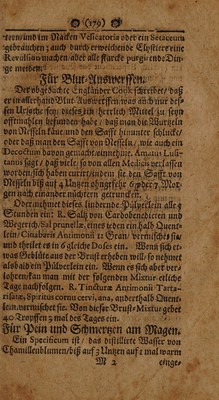 (179)
tern/und im Nacken Vesicatoria oder ein Setaceum
gebrauchen; auch durch erweichende Clystiere eine
Revulsion machen, aber alle starcke purgirende Din-
ge meiden.
Für Blut-Auswerffen.
Der obgedachte Engländer Cook schreibet/ daß
er in allerhand Blut Auswerffen, was auch nur des-
sen Ursache sey, dieses ein herrlich Mittel zu seyn
offtmahlen befunden habe/ daß man die Wurtzeln
von Nesseln käue/und den Safft hinunter schlucke/
oder daß man den Safft von Nesseln/ wie auch ein
Decoctum davon genützet, einnehme. Amatus Lusi-
tanus sagt/ daß welche/ so von allen Medicis verlassen
worden/sich haben curirt/indem sie den Safft von
Nesseln biß auf 4 Untzen ohngefehr 6 oder 7 Mor-
gen nach einander nüchtern getruncken.
Oder nehmet dieses lindernde Pülverlein alle 4
Stunden ein: R. Saltz von Cardobenedicten und
Wegerich/Sal prunellæ, eines ieden ein halb Quent-
lein Cinabaris Antimonii 12 Gran/ vermischets
und theilet es in 6 gleiche Doses ein. Wenn sich et-
was Geblüte aus der Brust erheben will/ so nehmet
also bald ein Pülverlein ein. Wenn es sich aber ver-
lohren/kan man mit der folgenden Mixtur etliche
Tage nachfolgen. R. Tincturæ Antimonii Tarta-
risatæ, Spiritus cornu cervi, ana, anderthalb Quent-
lein, vermischet sie. Von dieser Brust-Mixtur gebet
40 Tropffen 3 mal des Tages ein.
Für Pein und Schmertzen am Magen.
Ein Specificum ist/ das destillirte Wasser von
Chamillenblumen/biß auf 3 Untzen auf 2 mal warm
M 2
einge-